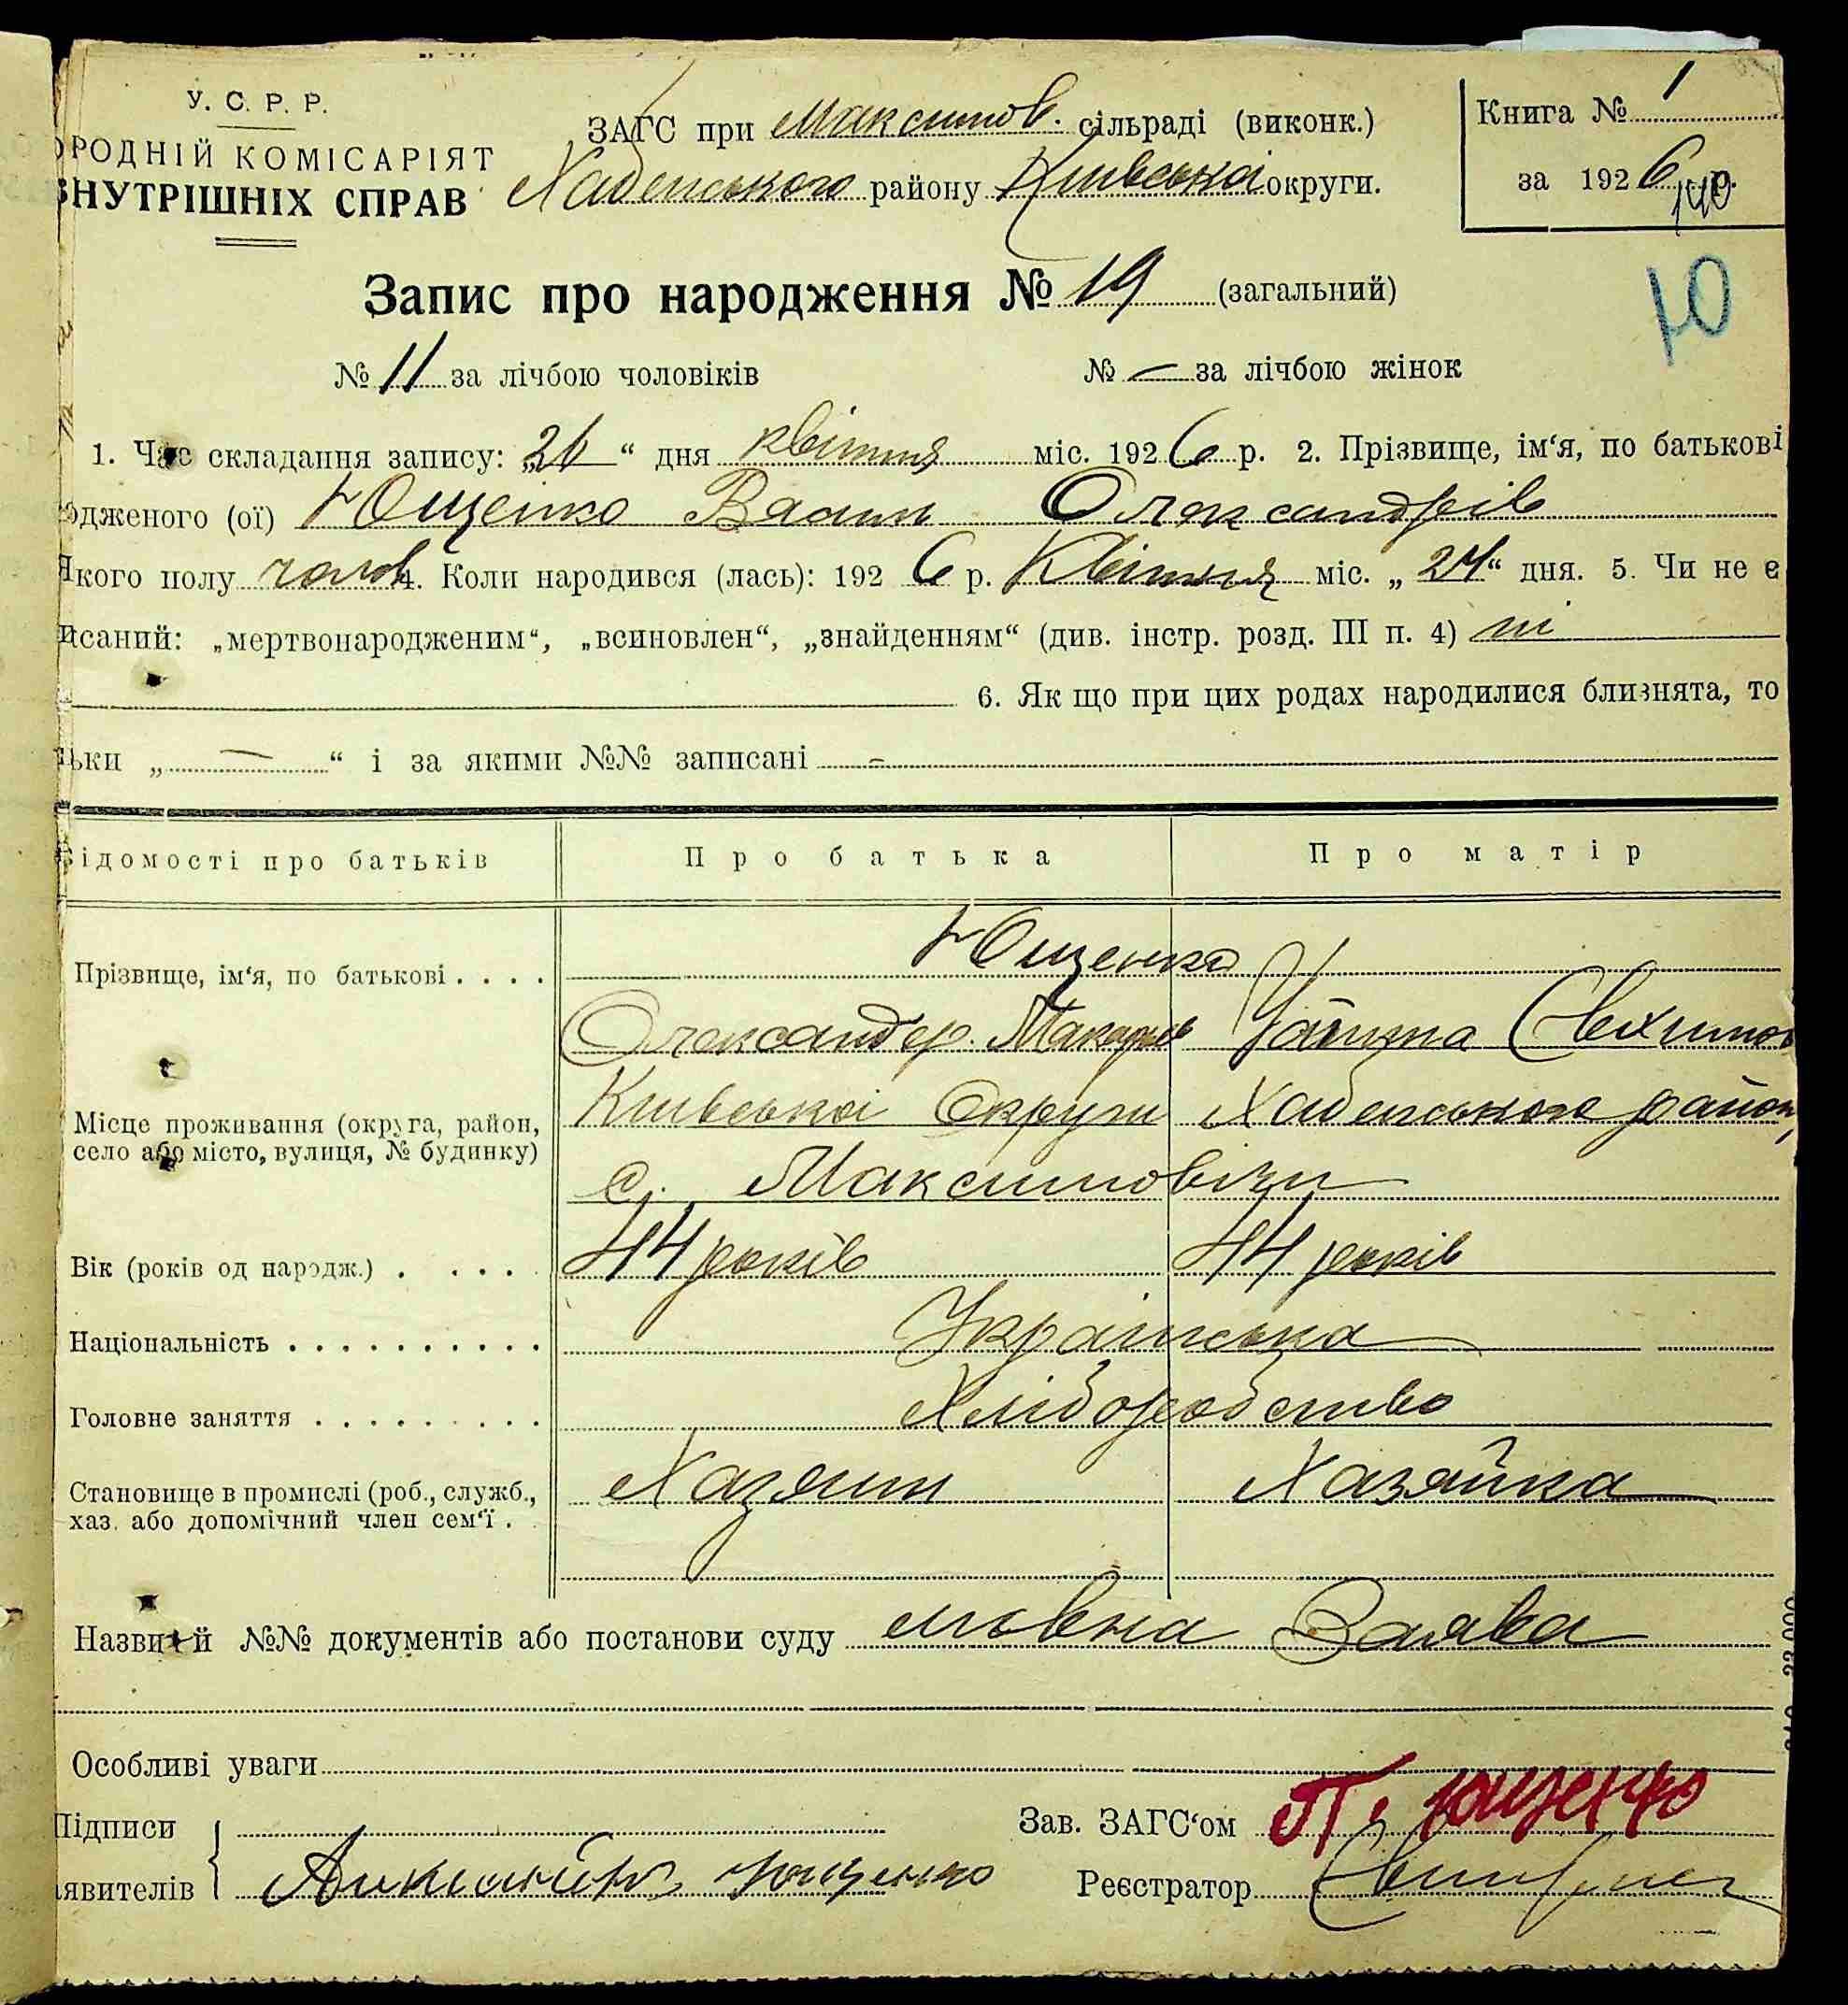 У. С. Р. Р.
ОРОДНІЙ КОМІСАРІЯТ
ВНУТРІШНІХ СПРАВ
ЗАГС при Максимов. сільраді (виконк.)
Хабенського району Київської округи.
Книга № 1
за 1926 р.
140
Ю
Запис про народження № 19 (загальний)
№ 11 за лічбою чоловіків № — за лічбою жінок
1. Час складання запису: „26“ дня квітня міс. 1926 р. 2. Прізвище, ім‘я, по батькові
одженого (ої) Ющенко Василь Олександрів
Якого полу чолов 4. Коли народився (лась): 1926 р. Квітня міс. „24“ дня. 5. Чи не є
исаний: „мертвонародженим“, „всиновлен“, „знайденням“ (див. інстр. розд. III п. 4) ні
6. Як що при цих родах народилися близнята, то
ьки „ — “ і за якими №№ записані -
Відомості про батьків Про батька Про матір
Прізвище, ім‘я, по батькові . . . . Ющенко
Олександер Макарів Євхимов
Місце проживання (округа, район, село або місто, вулиця, № будинку) Київської Округи Хабенського району
с. Максимовичи
Вік (років од народж.) . . . . 44 років 44 років
Національність . . . . . . . . . . . Українська
Головне заняття . . . . . . . . . . Хліборобство
Становище в промислі (роб., служб., Хазяин Хазяйка
хаз. або допомічний член сем‘ї .
Назви й №№ документів або постанови суду мовна Заява
Особливі уваги
Підписи
явителів Ющенко
Зав. ЗАГС‘ом П. Ющенко
Реєстратор